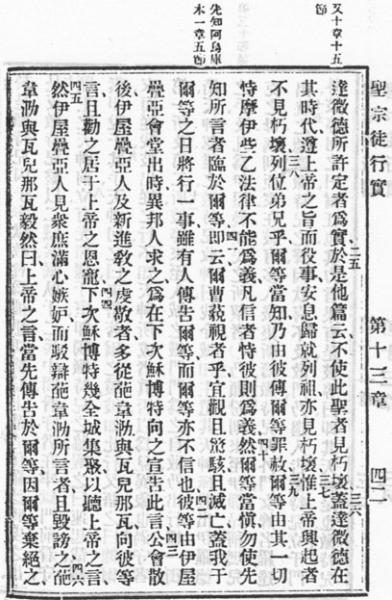 又十章十五
節
先知阿烏庫
木一章五節
聖宗徒行實
第十三章
四二
達微德所許定者爲實於是他篇云不使此聖者見朽壞蓋達微德在
其時代遵上帝之旨而役事安息歸就列祖亦見朽壞惟上帝興起者
不見朽壞列位弟兄乎爾等當知乃由彼傳爾等罪赦爾等由其一切
恃摩伊些乙法律不能爲義凡信者恃彼則爲義然爾等當愼勿使先
知所言者臨於爾等即云爾曹藐視者乎宜觀且驚駭且滅亡蓋我于
爾等之日將行一事雖有人傳告爾等而爾等亦不信也彼等由伊屋
疊亞會堂出時異邦人求之爲在下次穌博特向之宣告此言公會散
後伊屋疊亞人及新進敎之虔敬者多從葩韋泐與瓦兒那瓦向彼等
言且勸之居于上帝之恩寵下次穌博特幾全城集聚以聽上帝之言
然伊屋疊亞人見衆庶滿心嫉妒而駁辯葩韋泐所言者且毀謗之葩
韋泐與瓦兒那瓦毅然曰上帝之言當先傳告於爾等因爾等棄絶之
三五
三六
三七
三八
三九
四十
四一
四二
四三
四四
四五
四六